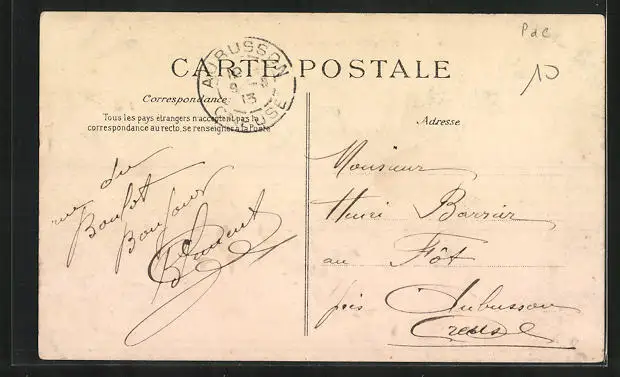 PdC
10
AUBUSSON
CREUSE
13
CARTE POSTALE
Correspondance
Tous les pays étrangers n'acceptent pas la
correspondance au recto, se renseigner à la Poste
Adresse
rue du
Boulot
Bonjour
Monsieur
Henri Barrier
au Fôt
près Aubusson
Creuse